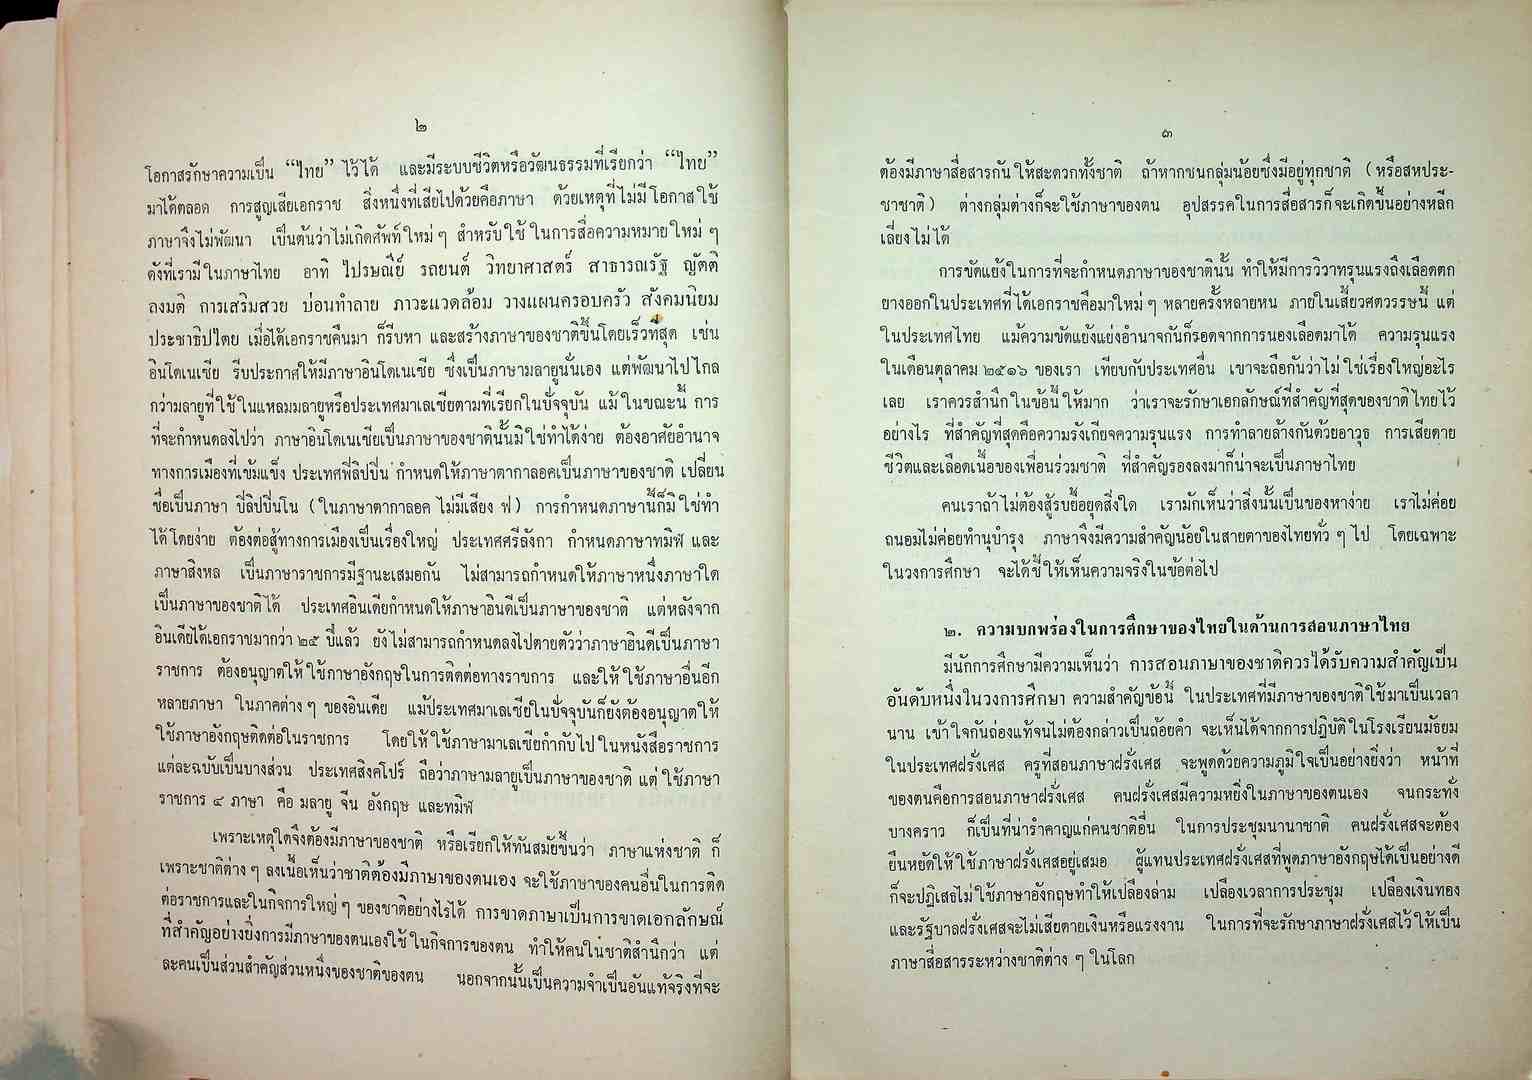 ๒
โอกาสรักษาความเป็น “ไทย” ไว้ได้ และมีระบบชีวิตหรือวัฒนธรรมที่เรียกว่า “ไทย”
มาได้ตลอด การสูญเสียเอกราช สิ่งหนึ่งที่เสียไปด้วยคือภาษา ด้วยเหตุที่ไม่มีโอกาสใช้
ภาษาจึงไม่พัฒนา เป็นต้นว่าไม่เกิดศัพท์ใหม่ๆ สำหรับใช้ในการสื่อความหมายใหม่ๆ
ดังที่เรามีในภาษาไทย อาทิ ไปรษณีย์ รถยนต์ วิทยาศาสตร์ สาธารณรัฐ ญัตติ
ลงมติ การเสริมสวย บ่อนทำลาย ภาวะแวดล้อม วางแผนครอบครัว สังคมนิยม
ประชาธิปไตย เมื่อได้เอกราชคืนมา ก็รีบหา และสร้างภาษาของชาติขึ้นโดยเร็วที่สุด เช่น
อินโดเนเซีย รีบประกาศให้มีภาษาอินโดเนเซีย ซึ่งเป็นภาษามลายูนั่นเอง แต่พัฒนาไปไกล
กว่ามลายูที่ใช้ในแหลมมลายูหรือประเทศมาเลเซียตามที่เรียกในปัจจุบัน แม้ในขณะนี้ การ
ที่จะกำหนดลงไปว่า ภาษาอินโดเนเซียเป็นภาษาของชาตินั้นมิใช่ทำได้ง่าย ต้องอาศัยอำนาจ
ทางการเมืองที่เข้มแข็ง ประเทศฟิลิปปินกำหนดให้ภาษาตากาลอคเป็นภาษาของชาติ เปลี่ยน
ชื่อเป็นภาษา ปิลิปปินโน (ในภาษาตากาลอค ไม่มีเสียง ฟ) การกำหนดภาษานี้ก็มิใช่ทำ
ได้โดยง่าย ต้องต่อสู้ทางการเมืองเป็นเรื่องใหญ่ ประเทศศรีลังกา กำหนดภาษาทมิฬและ
ภาษาสิงหล เป็นภาษาราชการมีฐานะเสมอกัน ไม่สามารถกำหนดให้ภาษาหนึ่งภาษาใด
เป็นภาษาของชาติได้ ประเทศอินเดียกำหนดให้ภาษาฮินดีเป็นภาษาของชาติ แต่หลังจาก
อินเดียได้เอกราชมากว่า ๒๕ ปีแล้ว ยังไม่สามารถกำหนดลงไปตายตัวว่าภาษาฮินดีเป็นภาษา
ราชการ ต้องอนุญาตให้ใช้ภาษาอังกฤษในการติดต่อทางราชการ และให้ใช้ภาษาอื่นอีก
หลายภาษา ในภาคต่างๆ ของอินเดีย แม้ประเทศมาเลเซียในปัจจุบันก็ยังต้องอนุญาตให้
ใช้ภาษาอังกฤษติดต่อในราชการ โดยให้ใช้ภาษามาเลเซียกำกับไปในหนังสือราชการ
แต่ละฉบับเป็นบางส่วน ประเทศสิงคโปร์ ถือว่าภาษามลายูเป็นภาษาของชาติ แต่ใช้ภาษา
ราชการ ๔ ภาษา คือ มลายู จีน อังกฤษ และทมิฬ
เพราะเหตุใดจึงต้องมีภาษาของชาติ หรือเรียกให้ทันสมัยขึ้นว่า ภาษาแห่งชาติ ก็
เพราะชาติต่างๆ ลงเนื้อเห็นว่าชาติต้องมีภาษาของตนเอง จะใช้ภาษาของคนอื่นในการติด
ต่อราชการและในกิจการใหญ่ๆ ของชาติอย่างไรได้ การขาดภาษาเป็นการขาดเอกลักษณ์
ที่สำคัญอย่างยิ่งการมีภาษาของตนเองใช้ในกิจการของตน ทำให้คนในชาติสำนึกว่า แต่
ละคนเป็นส่วนสำคัญส่วนหนึ่งของชาติของตน นอกจากนั้นเป็นความจำเป็นอันแท้จริงที่จะ
๓
ต้องมีภาษาสื่อสารกันให้สะดวกทั้งชาติ ถ้าหากชนกลุ่มน้อยซึ่งมีอยู่ทุกชาติ (หรือสหประ-
ชาชาติ) ต่างกลุ่มต่างก็จะใช้ภาษาของตน อุปสรรคในการสื่อสารก็จะเกิดขึ้นอย่างหลีก
เลี่ยงไม่ได้
การขัดแย้งในการที่จะกำหนดภาษาของชาตินั้น ทำให้มีการวิวาทรุนแรงถึงเลือดตก
ยางออกในประเทศที่ได้เอกราชคืนมาใหม่ๆ หลายครั้งหลายหน ภายในเสี้ยวศตวรรษนี้ แต่
ในประเทศไทย แม้ความขัดแย้งแย่งอำนาจกันก็รอดจากการนองเลือดมาได้ ความรุนแรง
ในเดือนตุลาคม ๒๕๑๖ ของเรา เทียบกับประเทศอื่น เขาจะถือกันว่าไม่ใช่เรื่องใหญ่อะไร
เลย เราควรสำนึกในข้อนี้ให้มาก ว่าเราจะรักษาเอกลักษณ์ที่สำคัญที่สุดของชาติไทยไว้
อย่างไร ที่สำคัญที่สุดคือความรังเกียจความรุนแรง การทำลายล้างกันด้วยอาวุธ การเสียดาย
ชีวิตและเลือดเนื้อของเพื่อนร่วมชาติ ที่สำคัญรองลงมาก็น่าจะเป็นภาษาไทย
คนเราถ้าไม่ต้องสู้รบยื้อยุดสิ่งใด เรามักเห็นว่าสิ่งนั้นเป็นของหาง่าย เราไม่ค่อย
ถนอมไม่ค่อยทำนุบำรุง ภาษาจึงมีความสำคัญน้อยในสายตาของไทยทั่วๆไป โดยเฉพาะ
ในวงการศึกษา จะได้ชี้ให้เห็นความจริงในข้อต่อไป
๒. ความบกพร่องในการศึกษาของไทยในด้านการสอนภาษาไทย
มีนักการศึกษามีความเห็นว่า การสอนภาษาของชาติควรได้รับความสำคัญเป็น
อันดับหนึ่งในวงการศึกษา ความสำคัญข้อนี้ ในประเทศที่มีภาษาของชาติใช้มาเป็นเวลา
นาน เข้าใจกันถ่องแท้จนไม่ต้องกล่าวเป็นถ้อยคำ จะเห็นได้จากการปฏิบัติในโรงเรียนมัธยม
ในประเทศฝรั่งเศส ครูที่สอนภาษาฝรั่งเศส จะพูดด้วยความภูมิใจเป็นอย่างยิ่งว่า หน้าที่
ของตนคือการสอนภาษาฝรั่งเศส คนฝรั่งเศสมีความหยิ่งในภาษาของตนเอง จนกระทั่ง
บางคราว ก็เป็นที่น่ารำคาญแก่คนชาติอื่น ในการประชุมนานาชาติ คนฝรั่งเศสจะต้อง
ยืนหยัดให้ใช้ภาษาฝรั่งเศสอยู่เสมอ ผู้แทนประเทศฝรั่งเศสที่พูดภาษาอังกฤษได้เป็นอย่างดี
ก็จะปฏิเสธไม่ใช้ภาษาอังกฤษทำให้เปลืองล่าม เปลืองเวลาการประชุม เปลืองเงินทอง
และรัฐบาลฝรั่งเศสจะไม่เสียดายเงินหรือแรงงาน ในการที่จะรักษาภาษาฝรั่งเศสไว้ให้เป็น
ภาษาสื่อสารระหว่างชาติต่างๆ ในโลก